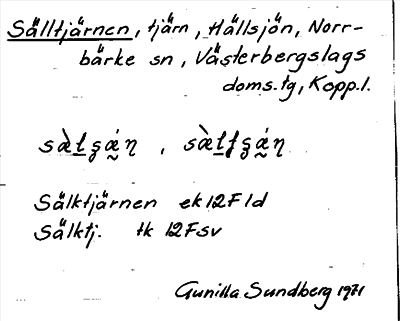 Sälltjärnen, tjärn, Hällsjön, Norr-
bärke sn, Västerbergslags
doms.tg, Kopp.l.
Sälktjärnen ek 12F1d
Sälktj. tk 12Fsv
Gunilla Sundberg 1971